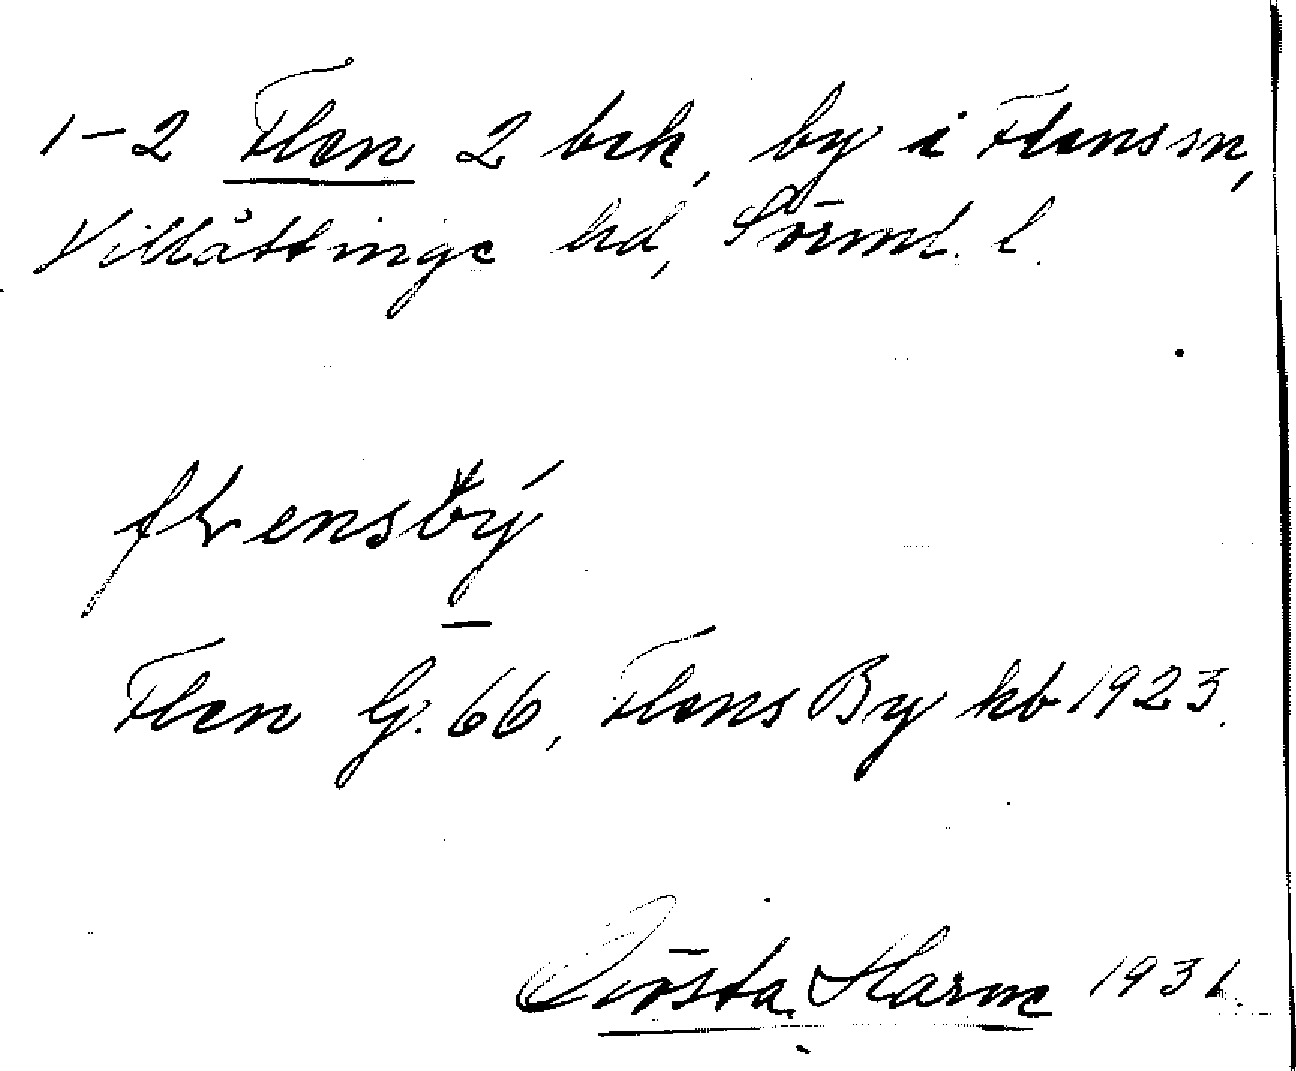 1-2 Flen 2 bck, by i Flens sn,
Villåttinge hd, Sörml. l.
flensbý
Flen G. 66, Flens By kb 1923.
Gösta Harme 1931.